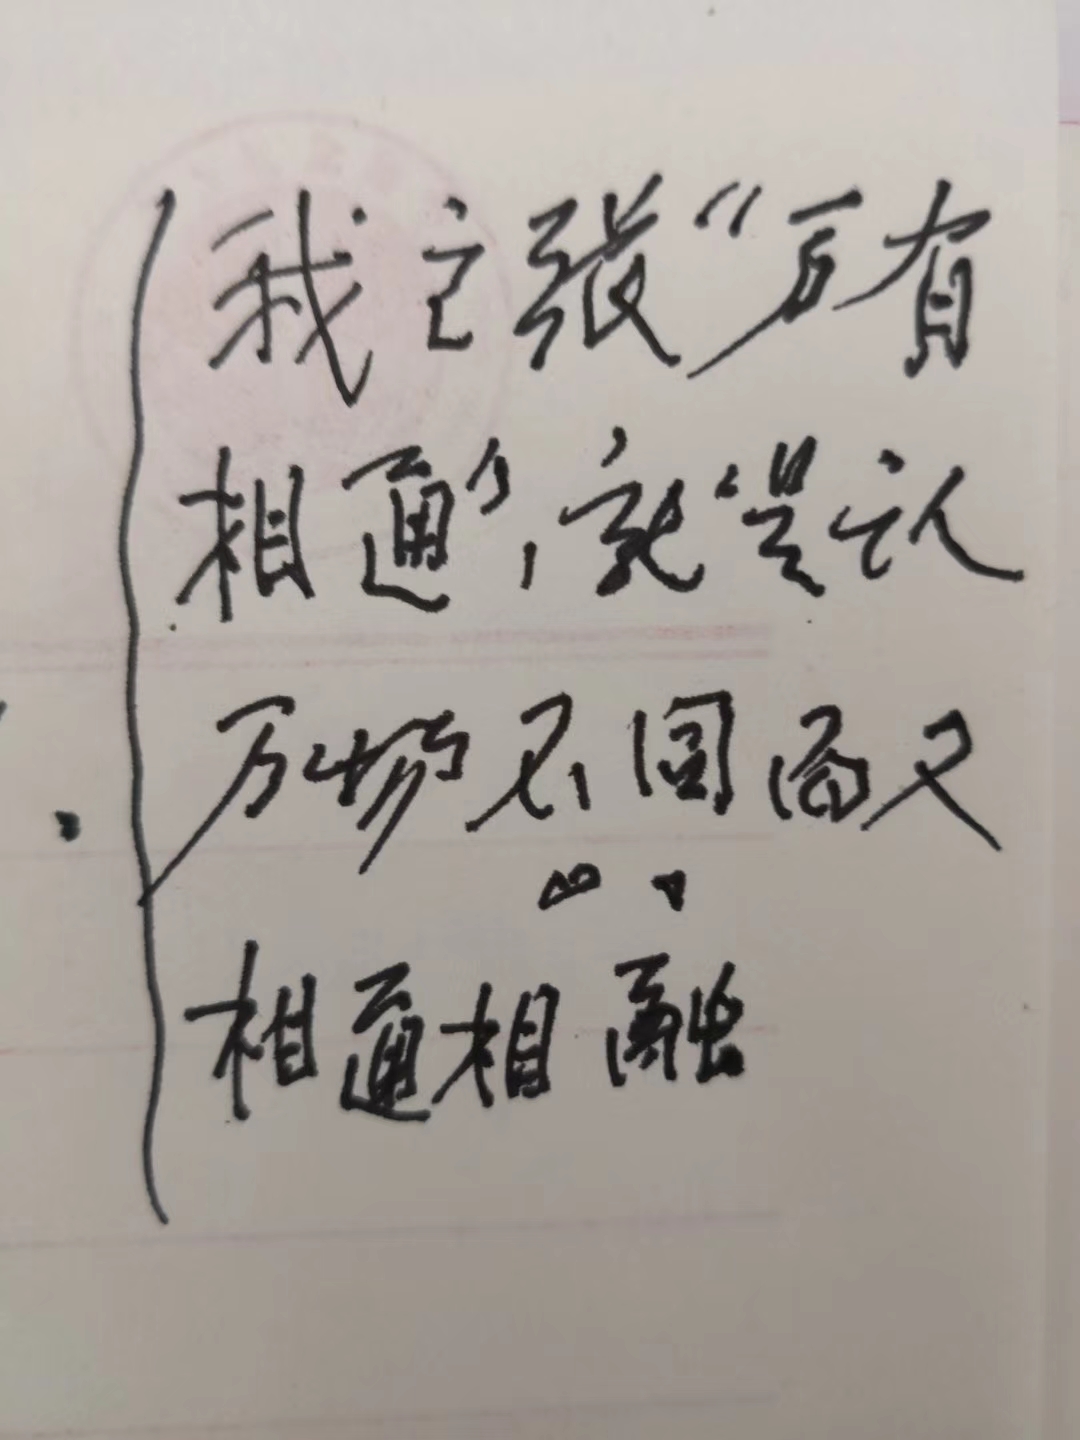 我主张“万有
相通”，就是认
万物不同而又
相通相融